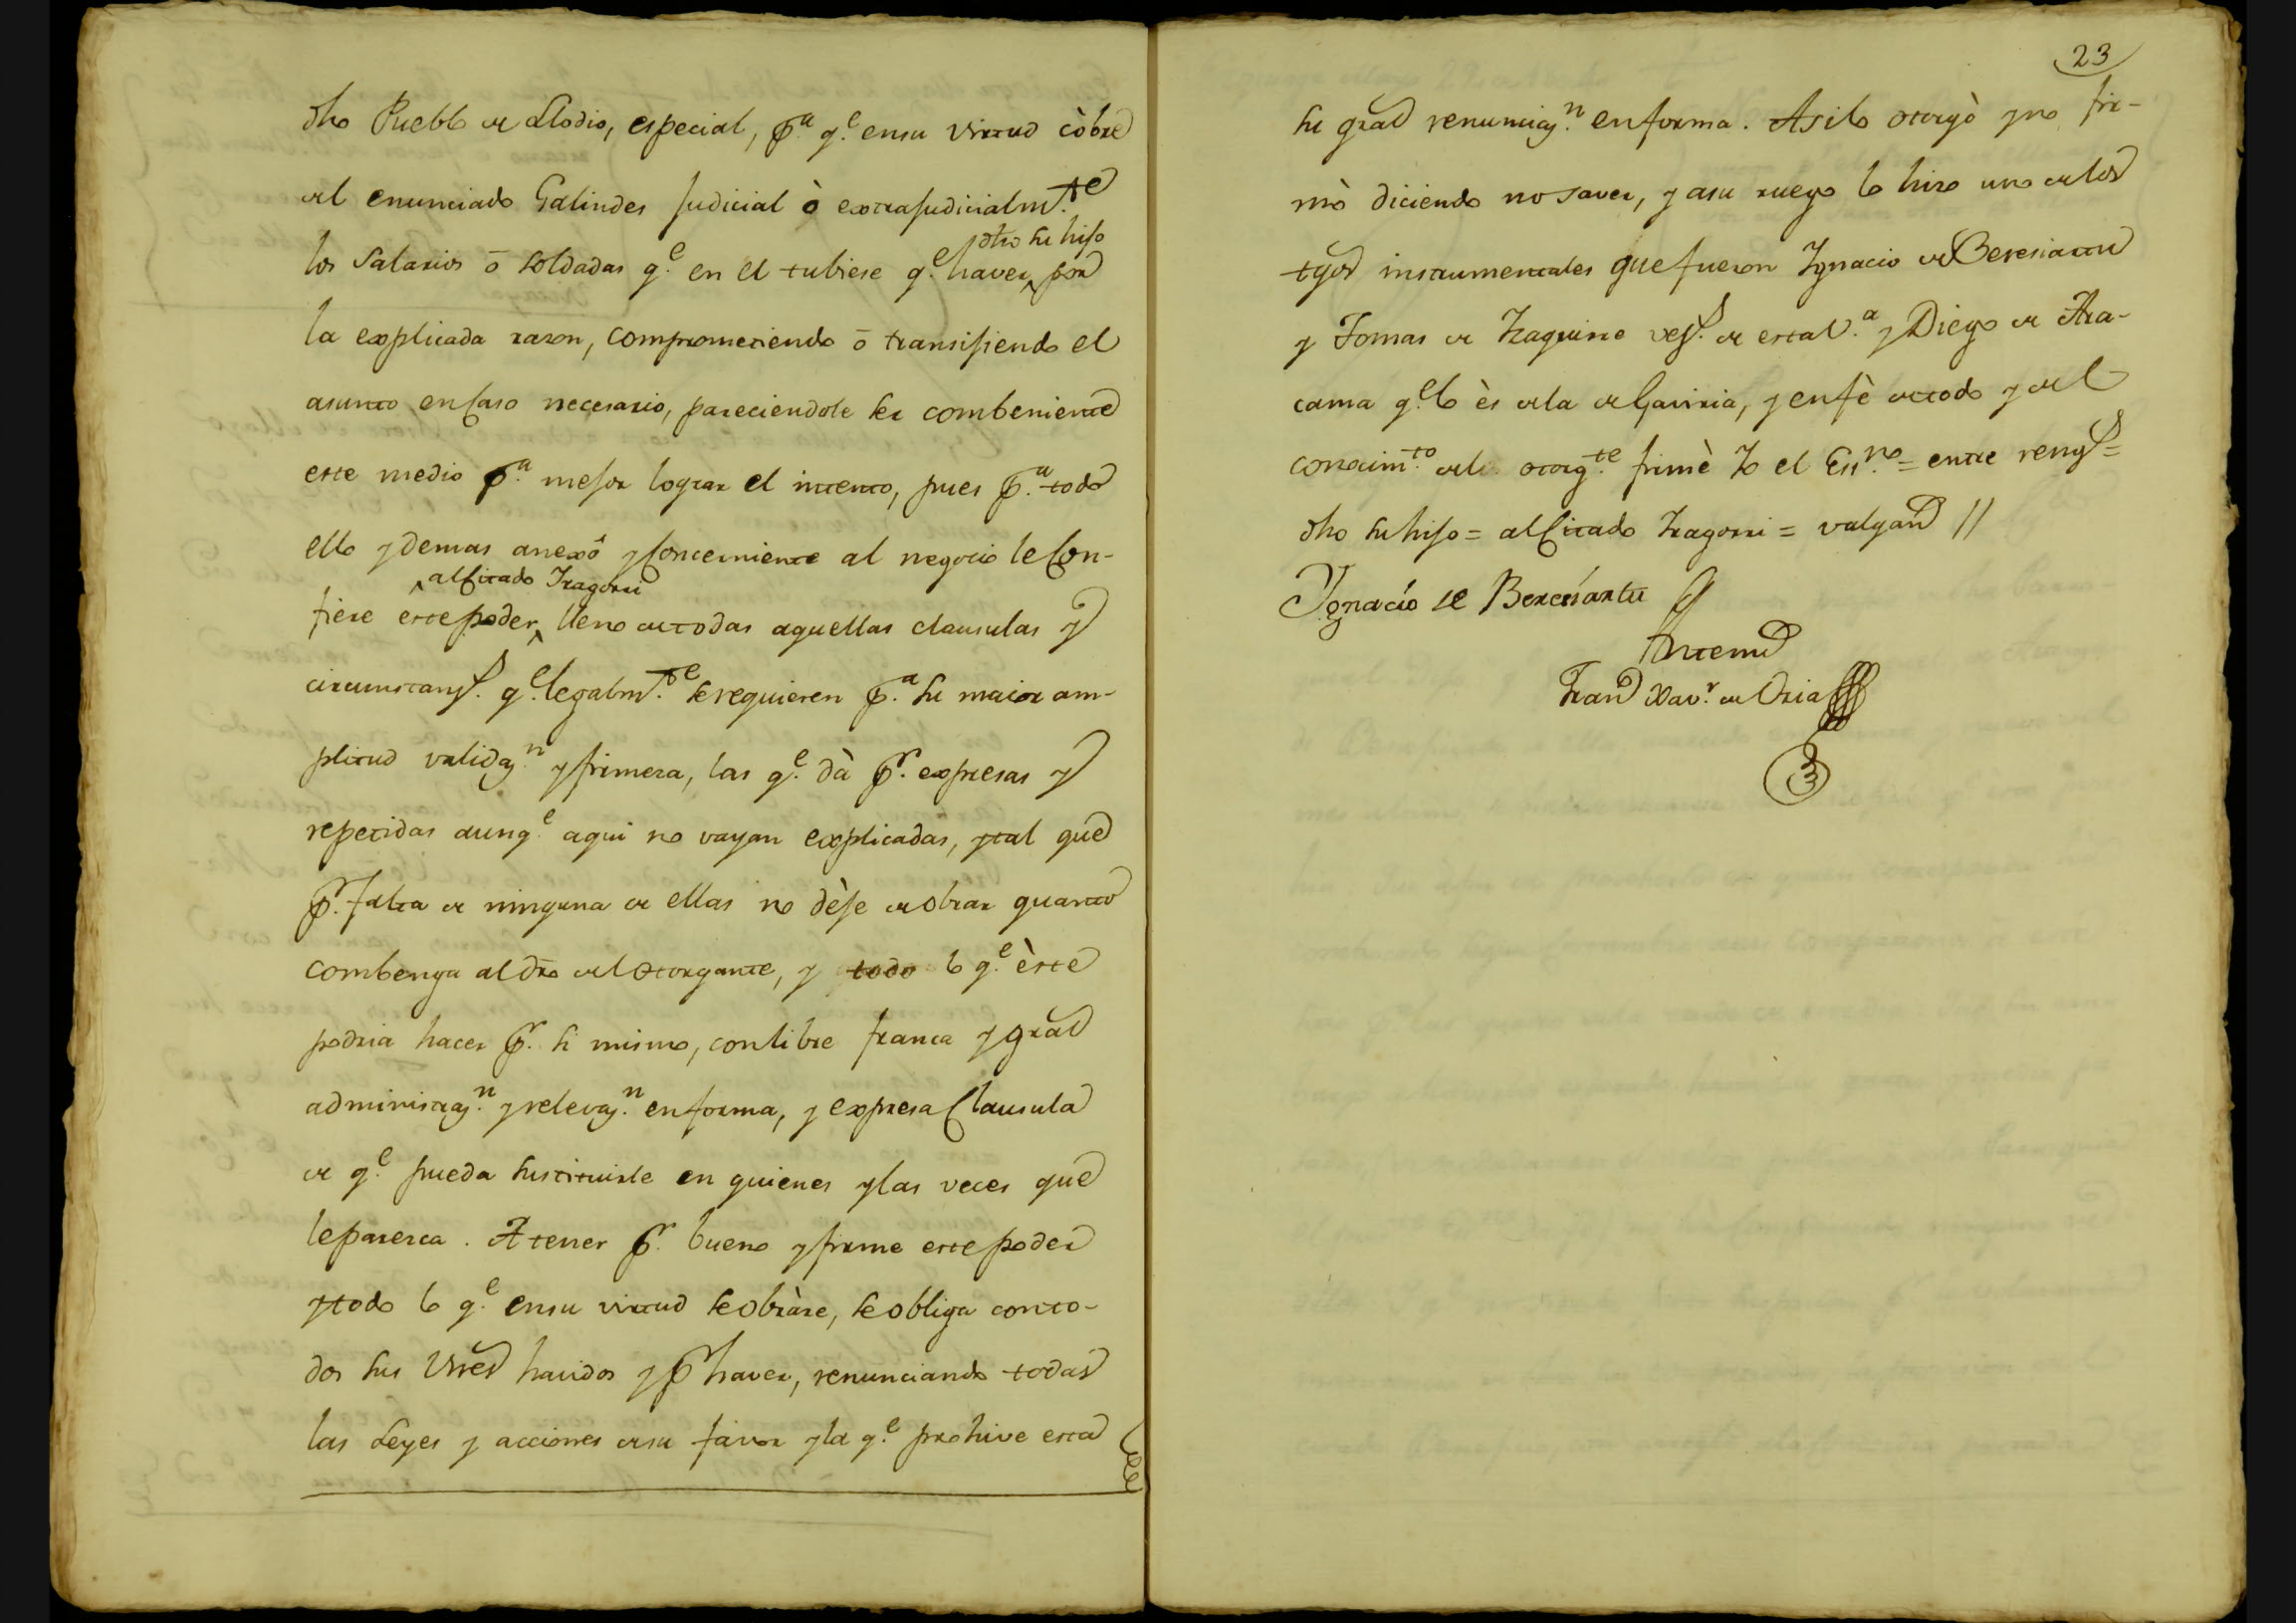 dho Pueblo de Llodio, especial, p.ª q.e ensu virtud còbre
del enunciado Galindes Judicial ò extrajudicialm.te
dho su hijo
los Salarios ō soldadas q.e en el tubiese q.e haver por
la explicada razon, comprometiendo ō transijiendo el
asunto en Caso necesario, pareciendole ser combeniente
este medio p.ª mejor lograr el intento, pues p.ª todo
ello y demas anexô y Concerniente al negocio le Con-
al Citado Iragorri
fiere este poder, lleno de todas aquellas clausulas y
circumstans. q.e legalm.te se requieren p.ª su maior am-
plitud validaz.n y firmeza, las q.e dà p.r expresas y
repetidas aunq.e aqui no vayan explicadas, y tal que
p.r falta de ninguna de ellas no dèje de obrar quanto
combenga al dro del otorgante, y todo lo q.e èste
podria hacer p.r si mismo, con libre franca y gral
administraz.n y relevaz.n en forma, y expresa Clausula
de q.e pueda sustituirle en quienes y las veces que
le paresca. A tener p.r bueno y firme este poder
y todo lo q.e ensu virtud se obràre, se obliga con to-
dos sus Vnes havidos y p.r haver, renunciando todas
las Leyes y acciones de su favor y la q.e prohive esta
23
su gral renunciaz.n en forma. Asi lo otorgò y no fir-
mò diciendo no saver, y asu ruego lo hizo uno de los
tgos instrumentales que fueron Ygnacio de Beresiartu
y Tomas de Izaguirre vez.s de esta V.ª y Diego de Ara-
cama q.e lo ès de la de Gaviria, y en fè de todo y del
conocim.to del otorg.te firmè Yo el Ess.no = entre reng.s =
dho su hijo = al Citado Iragorri = valgan //
Ygnacio de Beresiartu
Antemi
Fran Xav.r de Oria
3